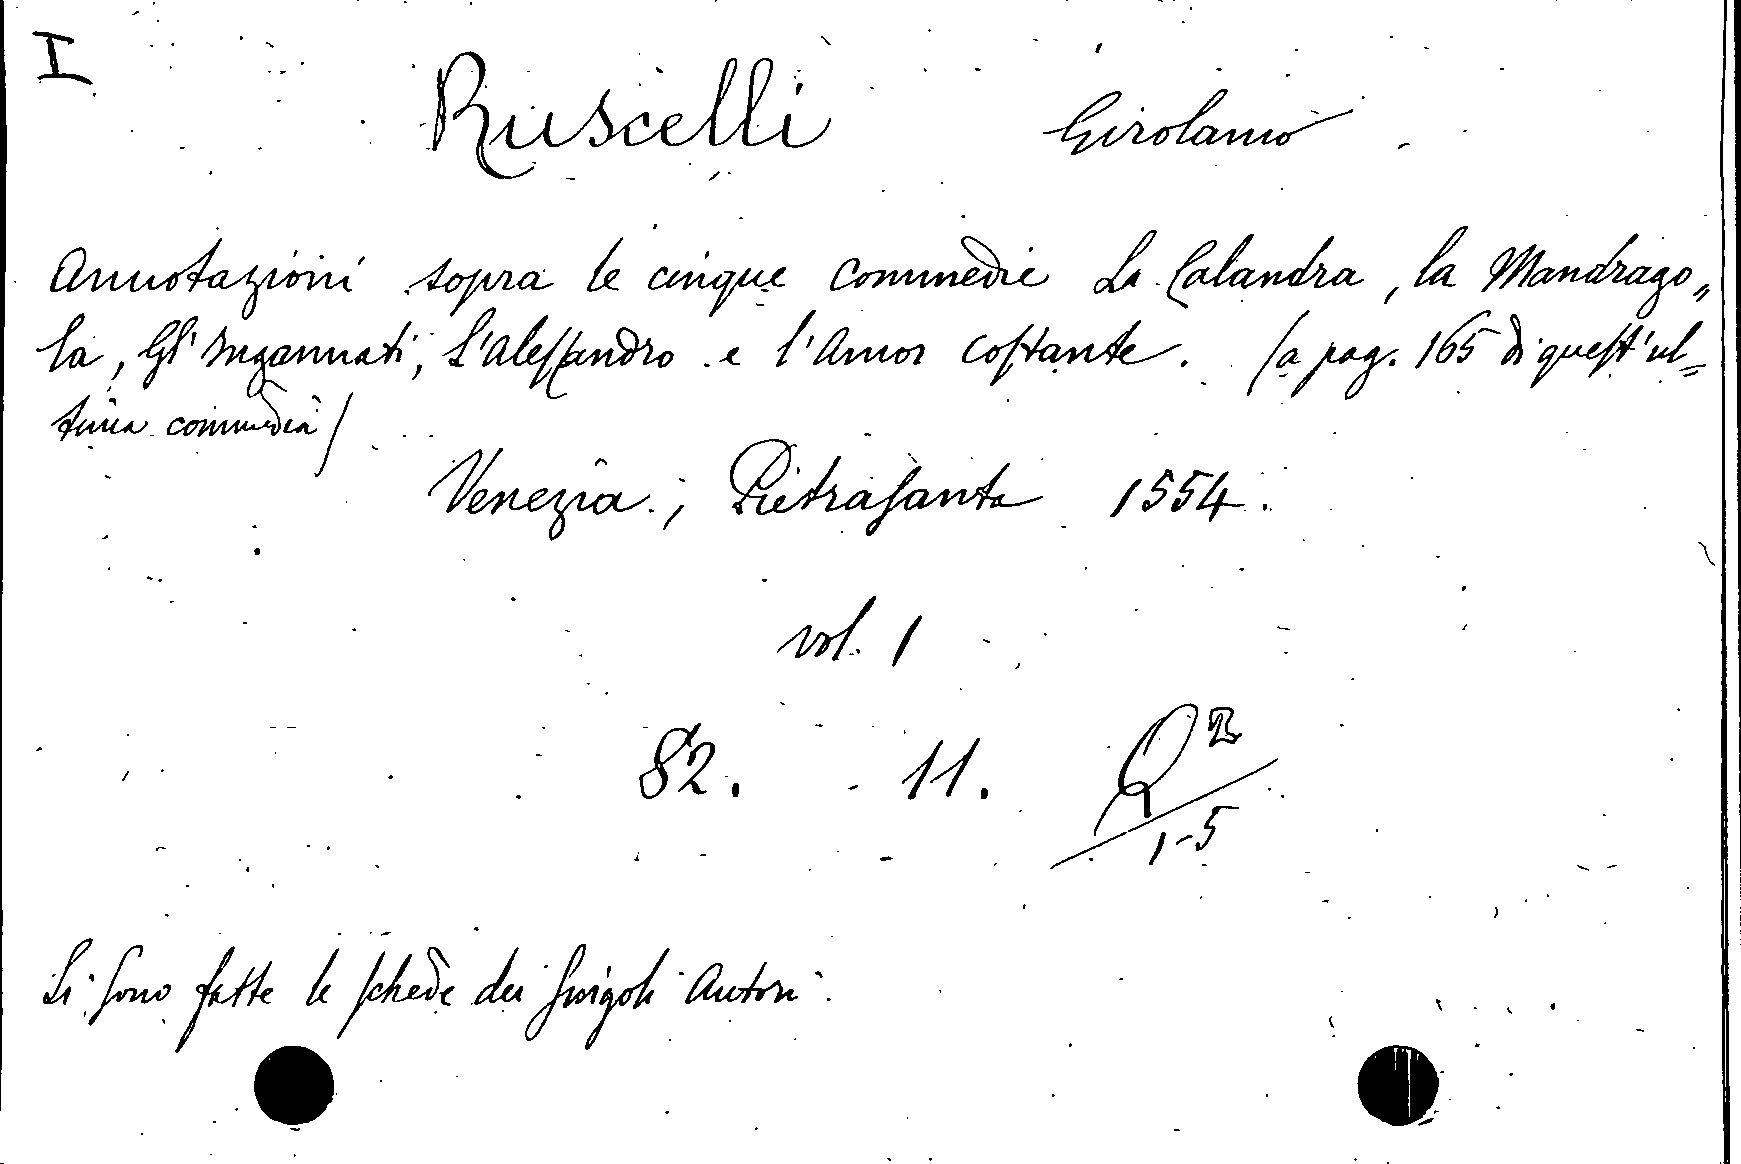 I
Ruscelli Girolamo
Annotazioni sopra le cinque commedie La Calandra, la Mandrago„
la, Gl'Ingannati, L'Alessandro e l'Amor costante. (a pag. 165 di quest'ul=
tima commedia)
Venezia, Pietrasanta 1554.
vol. 1
82. 11. Q²/1-5
Si sono fatte le schede dei singoli Autori.